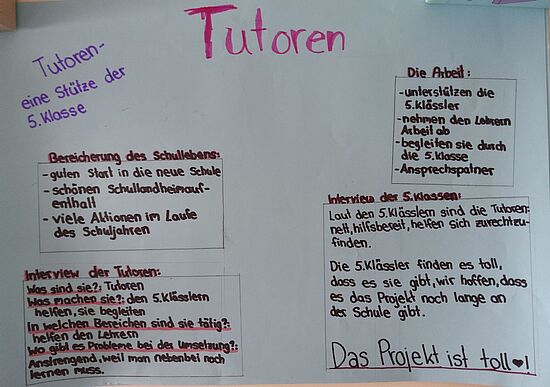 Tutoren
Tutoren-
eine Stütze der
5. Klasse
Die Arbeit:
-unterstützen die
5. Klässler
-nehmen den Lehrern
Arbeit ab
-begleiten sie durch
die 5. Klasse
-Ansprechpatner
Bereicherung des Schullebens:
-guten Start in die neue Schule
-schönen Schullandheimauf-
enthalt
-viele Aktionen im Laufe
des Schuljahren
Interview der 5. Klassen:
Laut den 5. Klässlern sind die Tutoren:
nett, hilfsbereit, helfen sich zurechtzu-
finden.
Die 5. Klässler finden es toll,
dass es sie gibt, wir hoffen, dass
es das Projekt noch lange an
der Schule gibt.
Das Projekt ist toll ♥!
Interview der Tutoren:
Was sind sie?: Tutoren
Was machen sie?: den 5. Klässlern
helfen, sie begleiten
In welchen Bereichen sind sie tätig?:
helfen den Lehrern
Wo gibt es Probleme bei der Umsetzung?:
Anstrengend, weil man nebenbei noch
lernen muss.